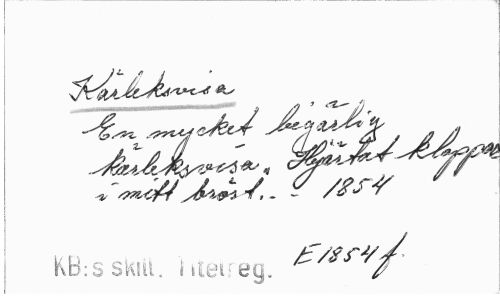 Kärleksvisa
En mycket begärlig
kärleksvisa. Hjärtat klappar
i mitt bröst... - 1854
E 1854 f.
KB:s skill. Titelreg.